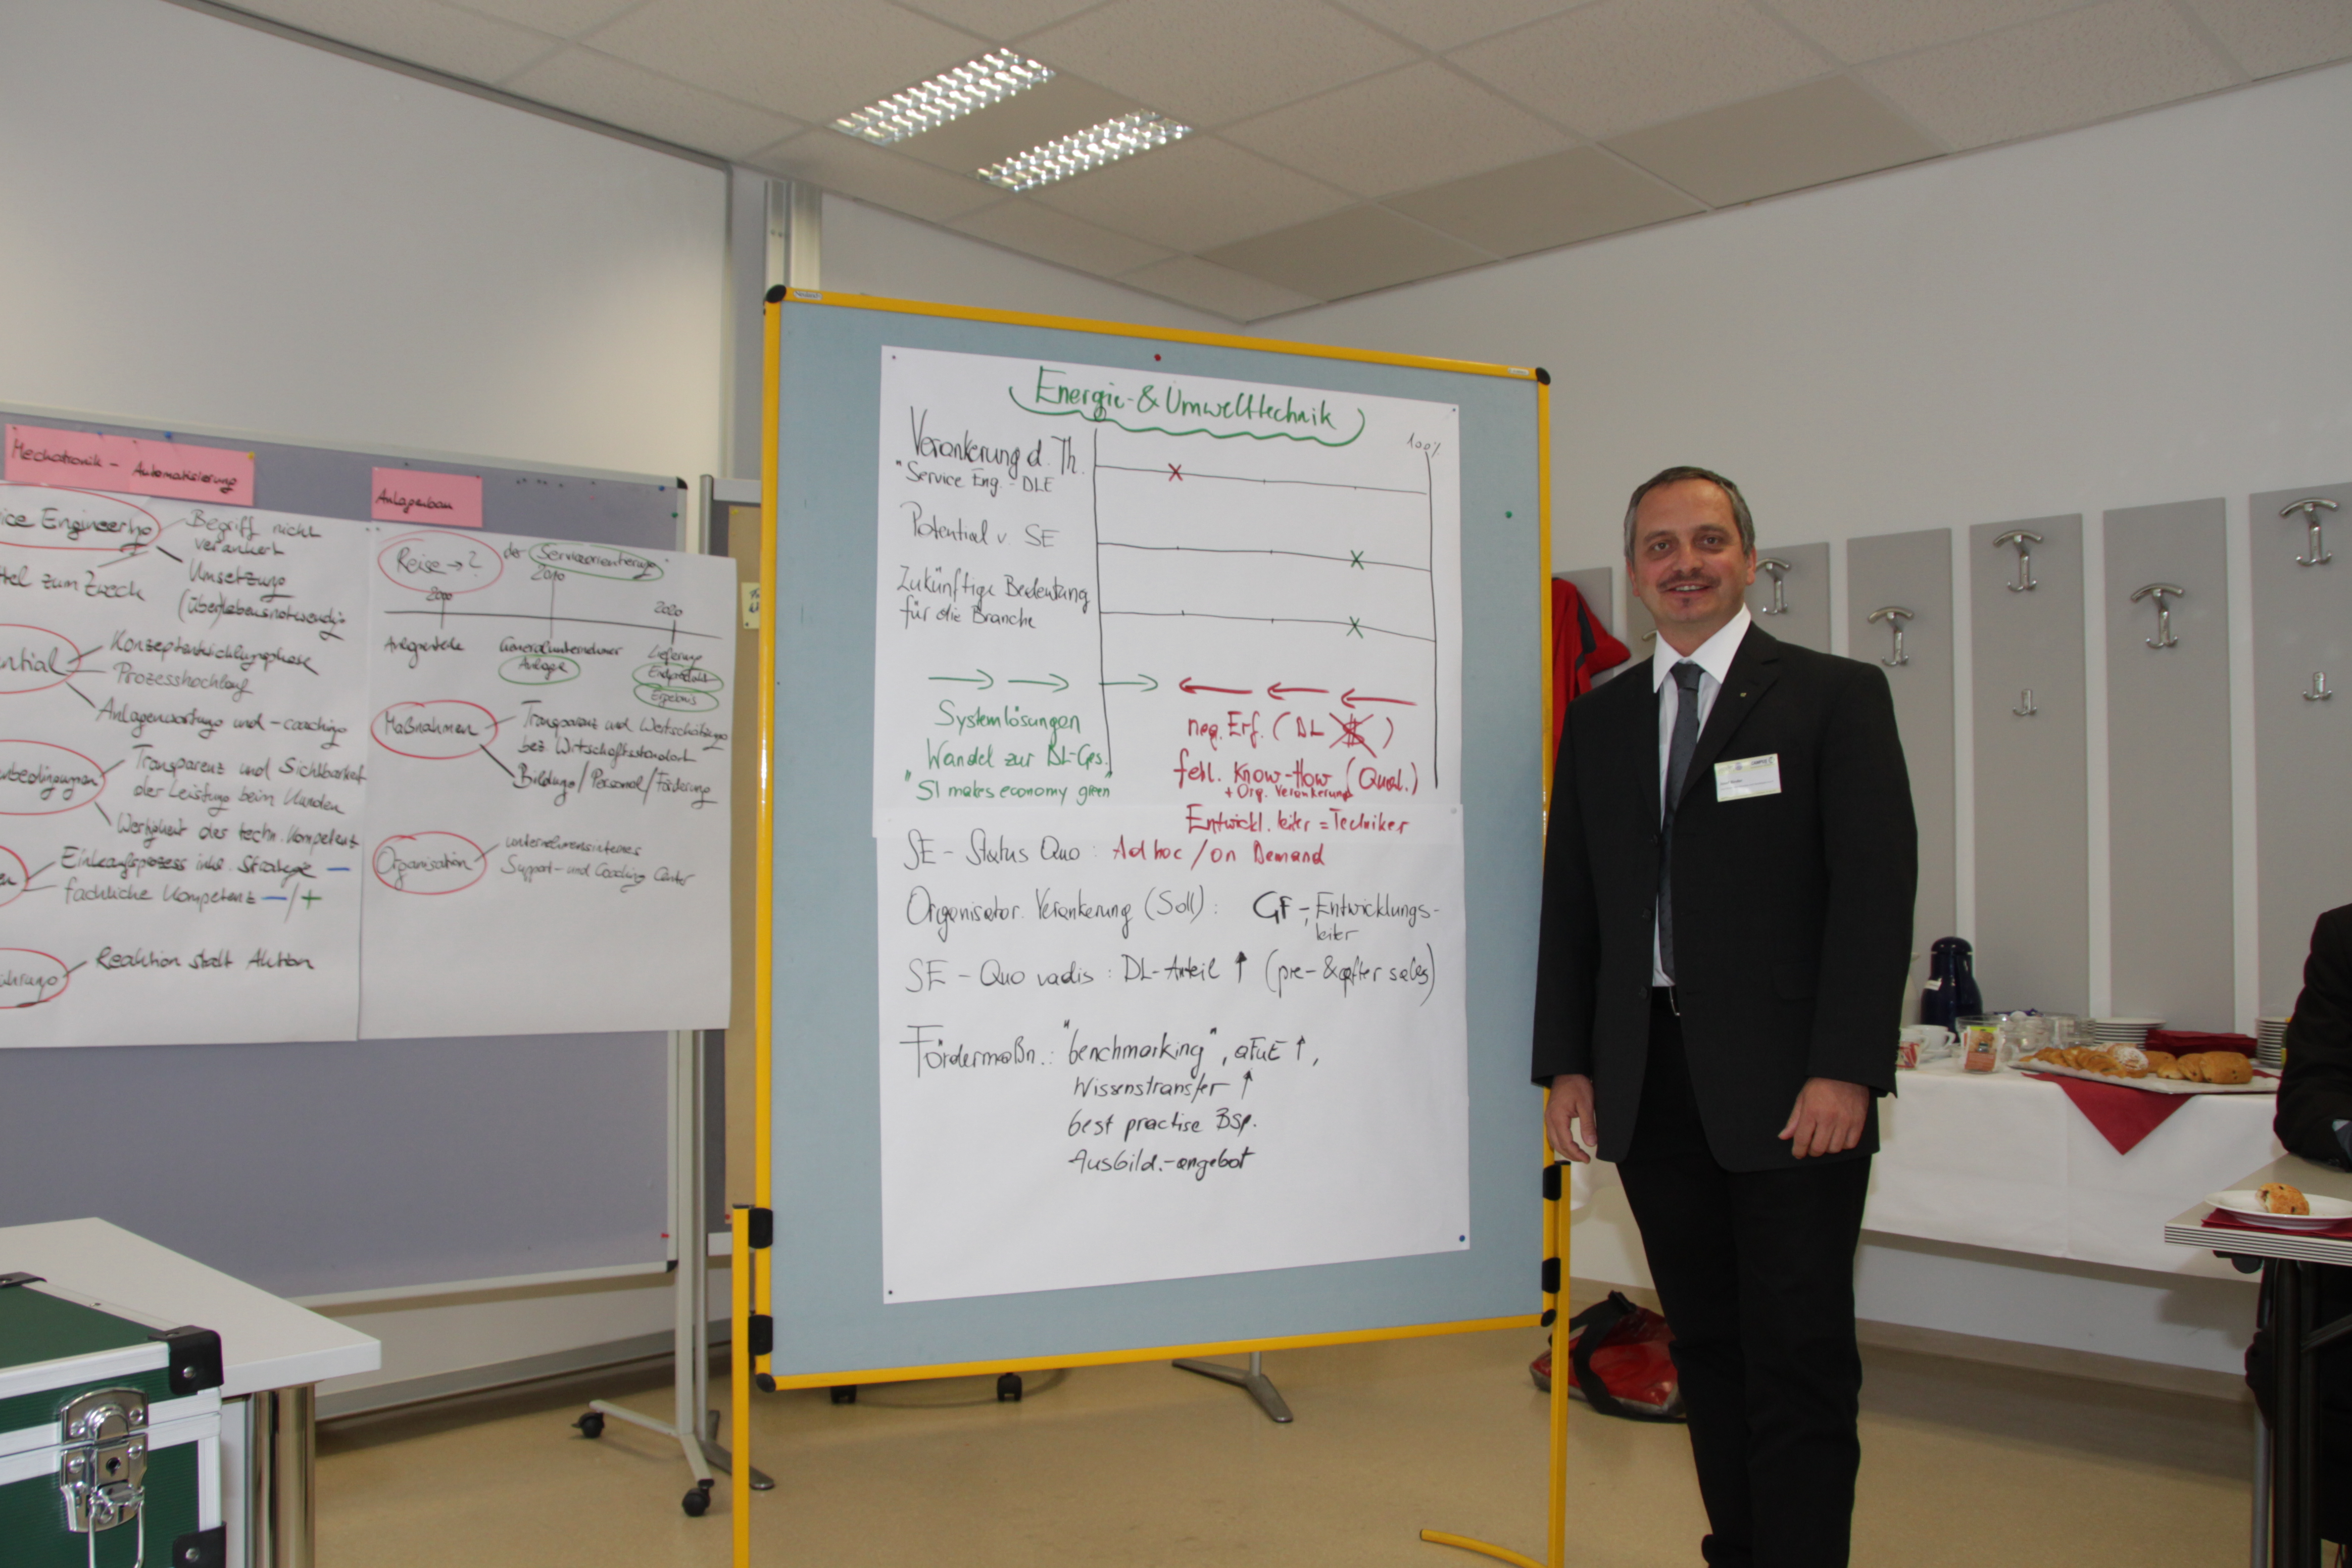 Mechatronik - Automatisierung
ice Engineering
Begriff nicht
verankert
Umsetzung
(über)lebensnotwendig
tel zum Zweck
ntial
Konzeptentwicklungsphase
Prozesshochlauf
Anlagenwartung und -coaching
nbedingungen
Transparenz und Sichtbarkeit
der Leistung beim Kunden
Wertigkeit der techn. Kompetenz
en
Einkaufsprozess inkl. Strategie —
fachliche Kompetenz —/+
Reaktion statt Aktion
Anlagenbau
Reise → ?
der Serviceorientierung
2000
2010
2020
Anlagenteile
Generalunternehmer
Anlage
Lieferung
Endprodukt
Ergebnis
Maßnahmen
Transparenz und Wertschätzung
bez. Wirtschaftsstandort
Bildung/Personal/Förderung
Organisation
unternehmensinternes
Support- und Coaching Center
Energie- & Umwelttechnik
100%
Verankerung d. Th.
"Service Eng. - DLE
Potential v. SE
Zukünftige Bedeutung
für die Branche
Systemlösungen
Wandel zur DL-Ges.
"SI makes economy green"
neg. Erf. (DL $)
fehl. Know-How (Qual.)
+ Org. Verankerung
Entwickl. leiter = Techniker
SE - Status Quo: Ad hoc / on Demand
Organisator. Verankerung (Soll): GF -, Entwicklungs-
leiter
SE - Quo vadis: DL-Anteil ↑ (pre- & after sales)
Fördermaßn.: "benchmarking", aFuE ↑,
Wissenstransfer ↑
best practise Bsp.
Ausbild.-angebot